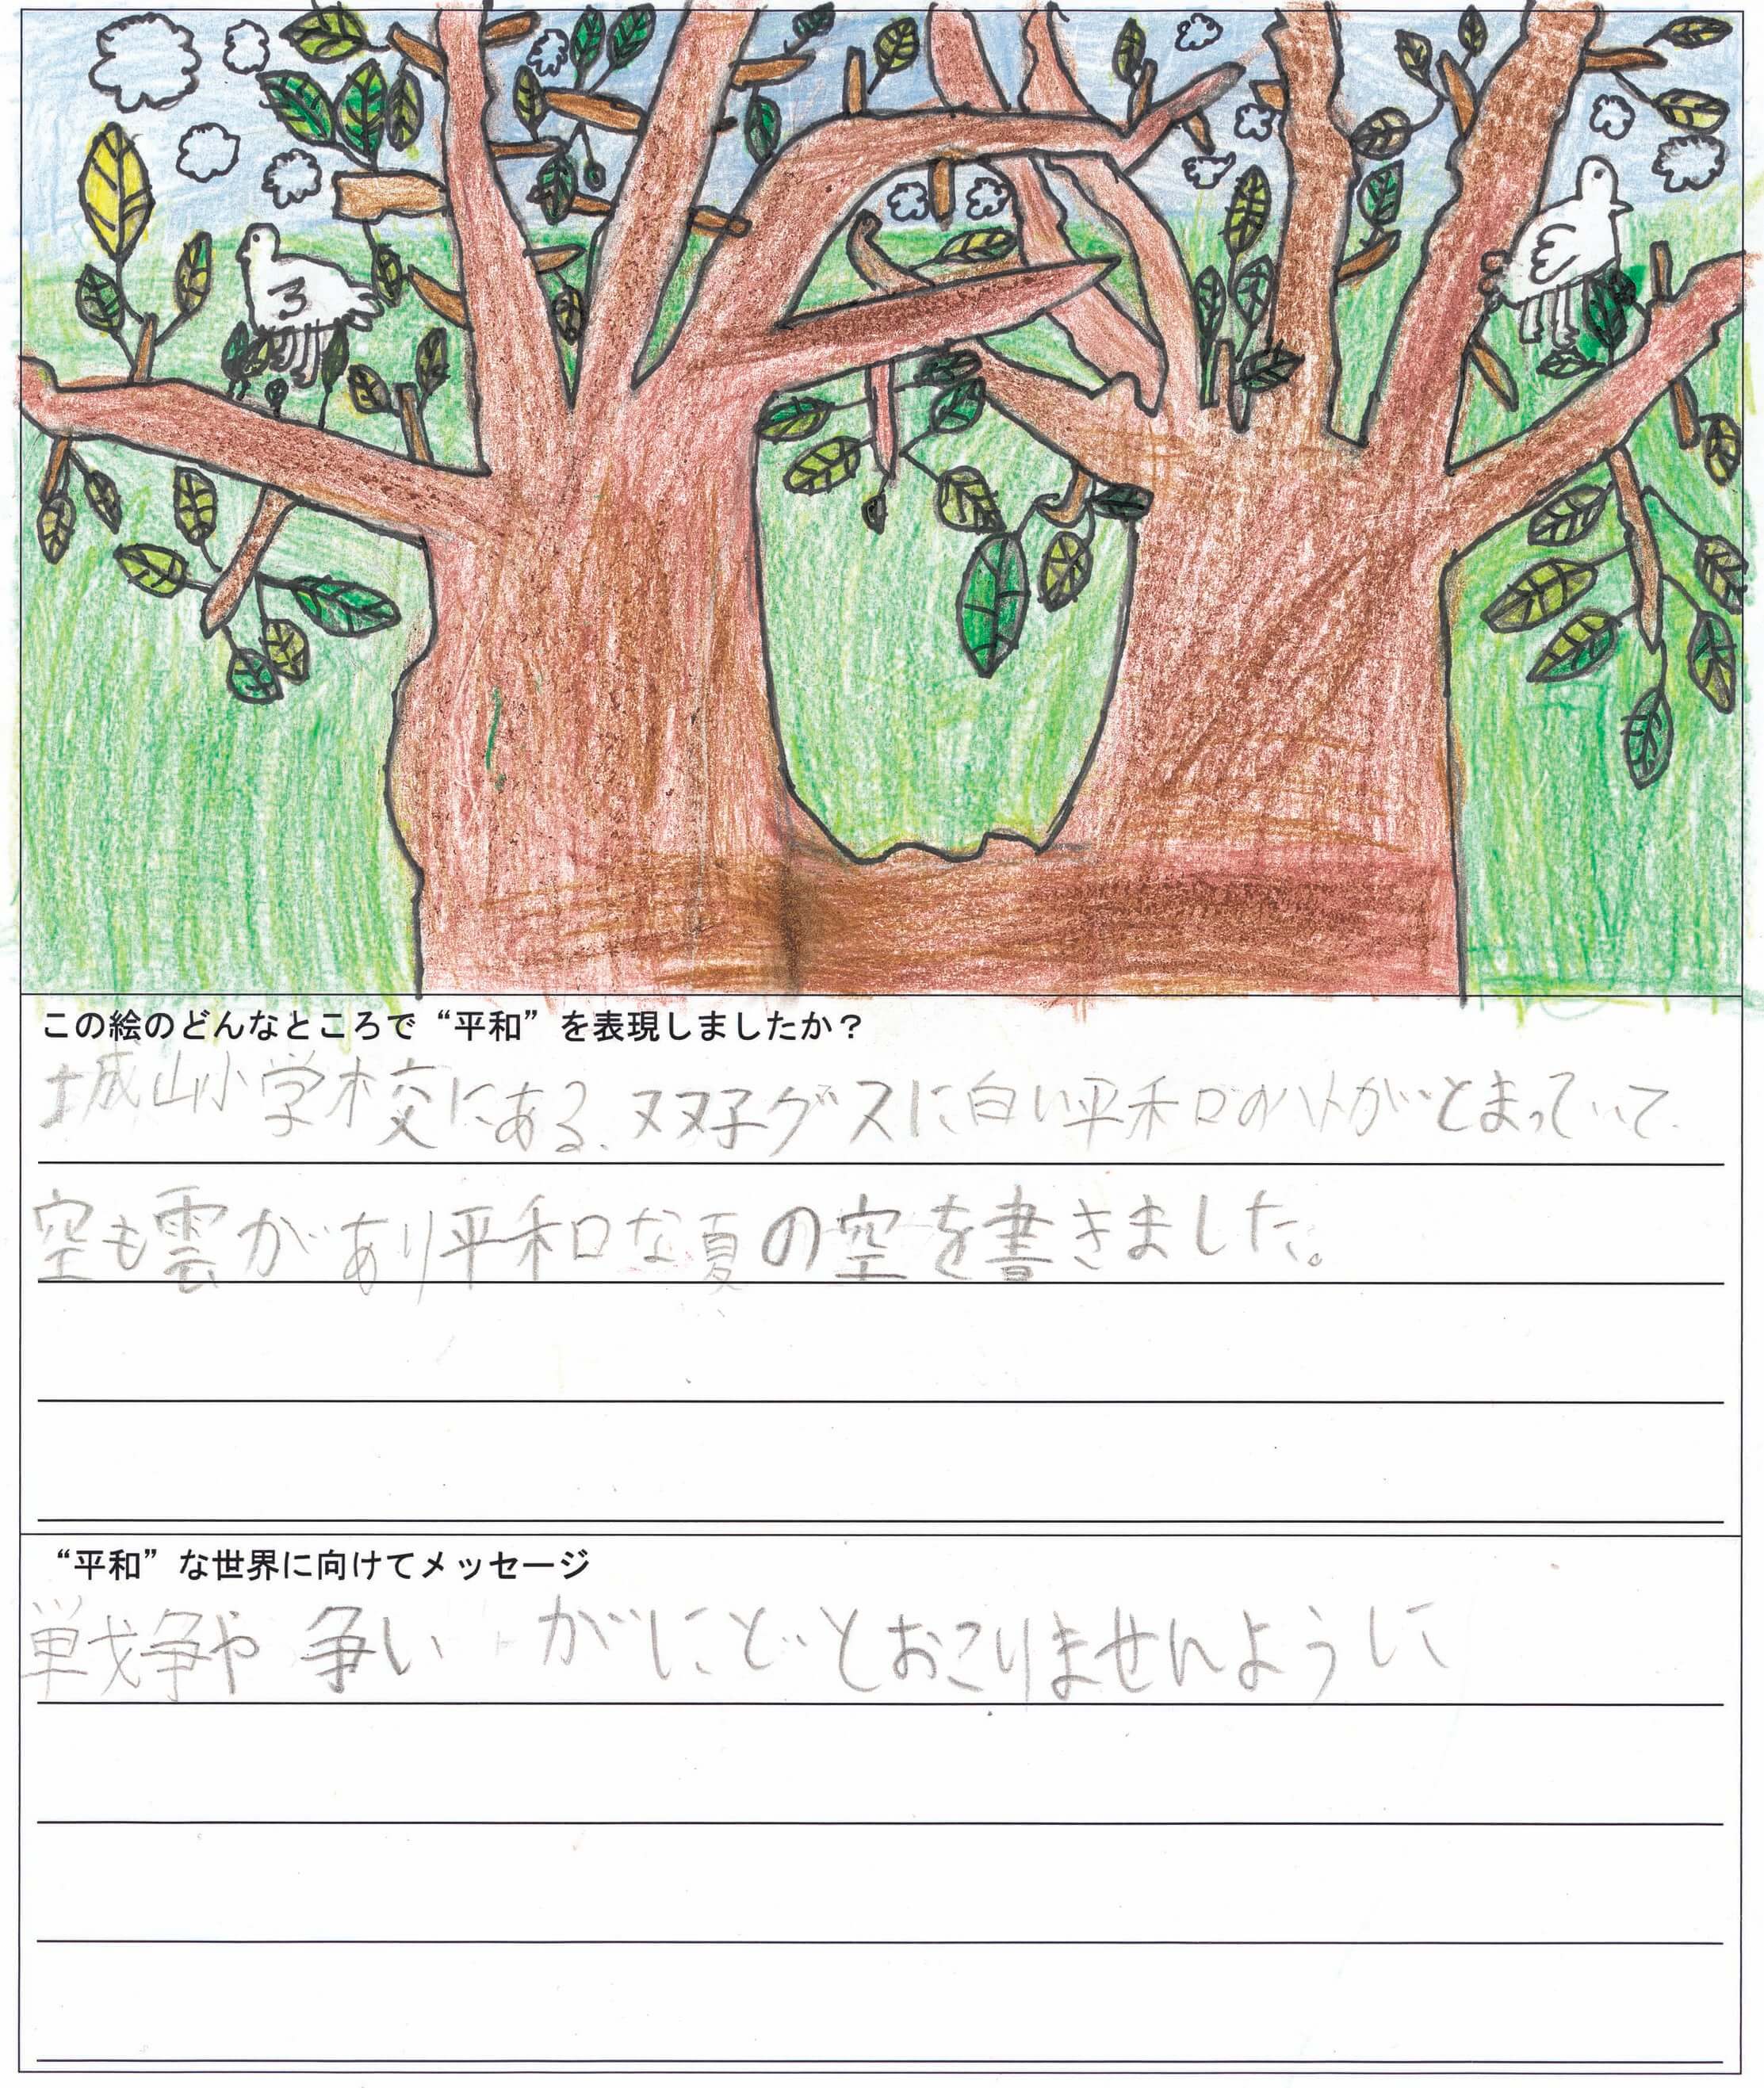 この絵のどんなところで“平和”を表現しましたか？
城山小学校にある、双子グスに白い平和のハトがとまっていて、
空も雲があり平和な夏の空を書きました。
“平和”な世界に向けてメッセージ
戦争や争いがにどとおこりませんように